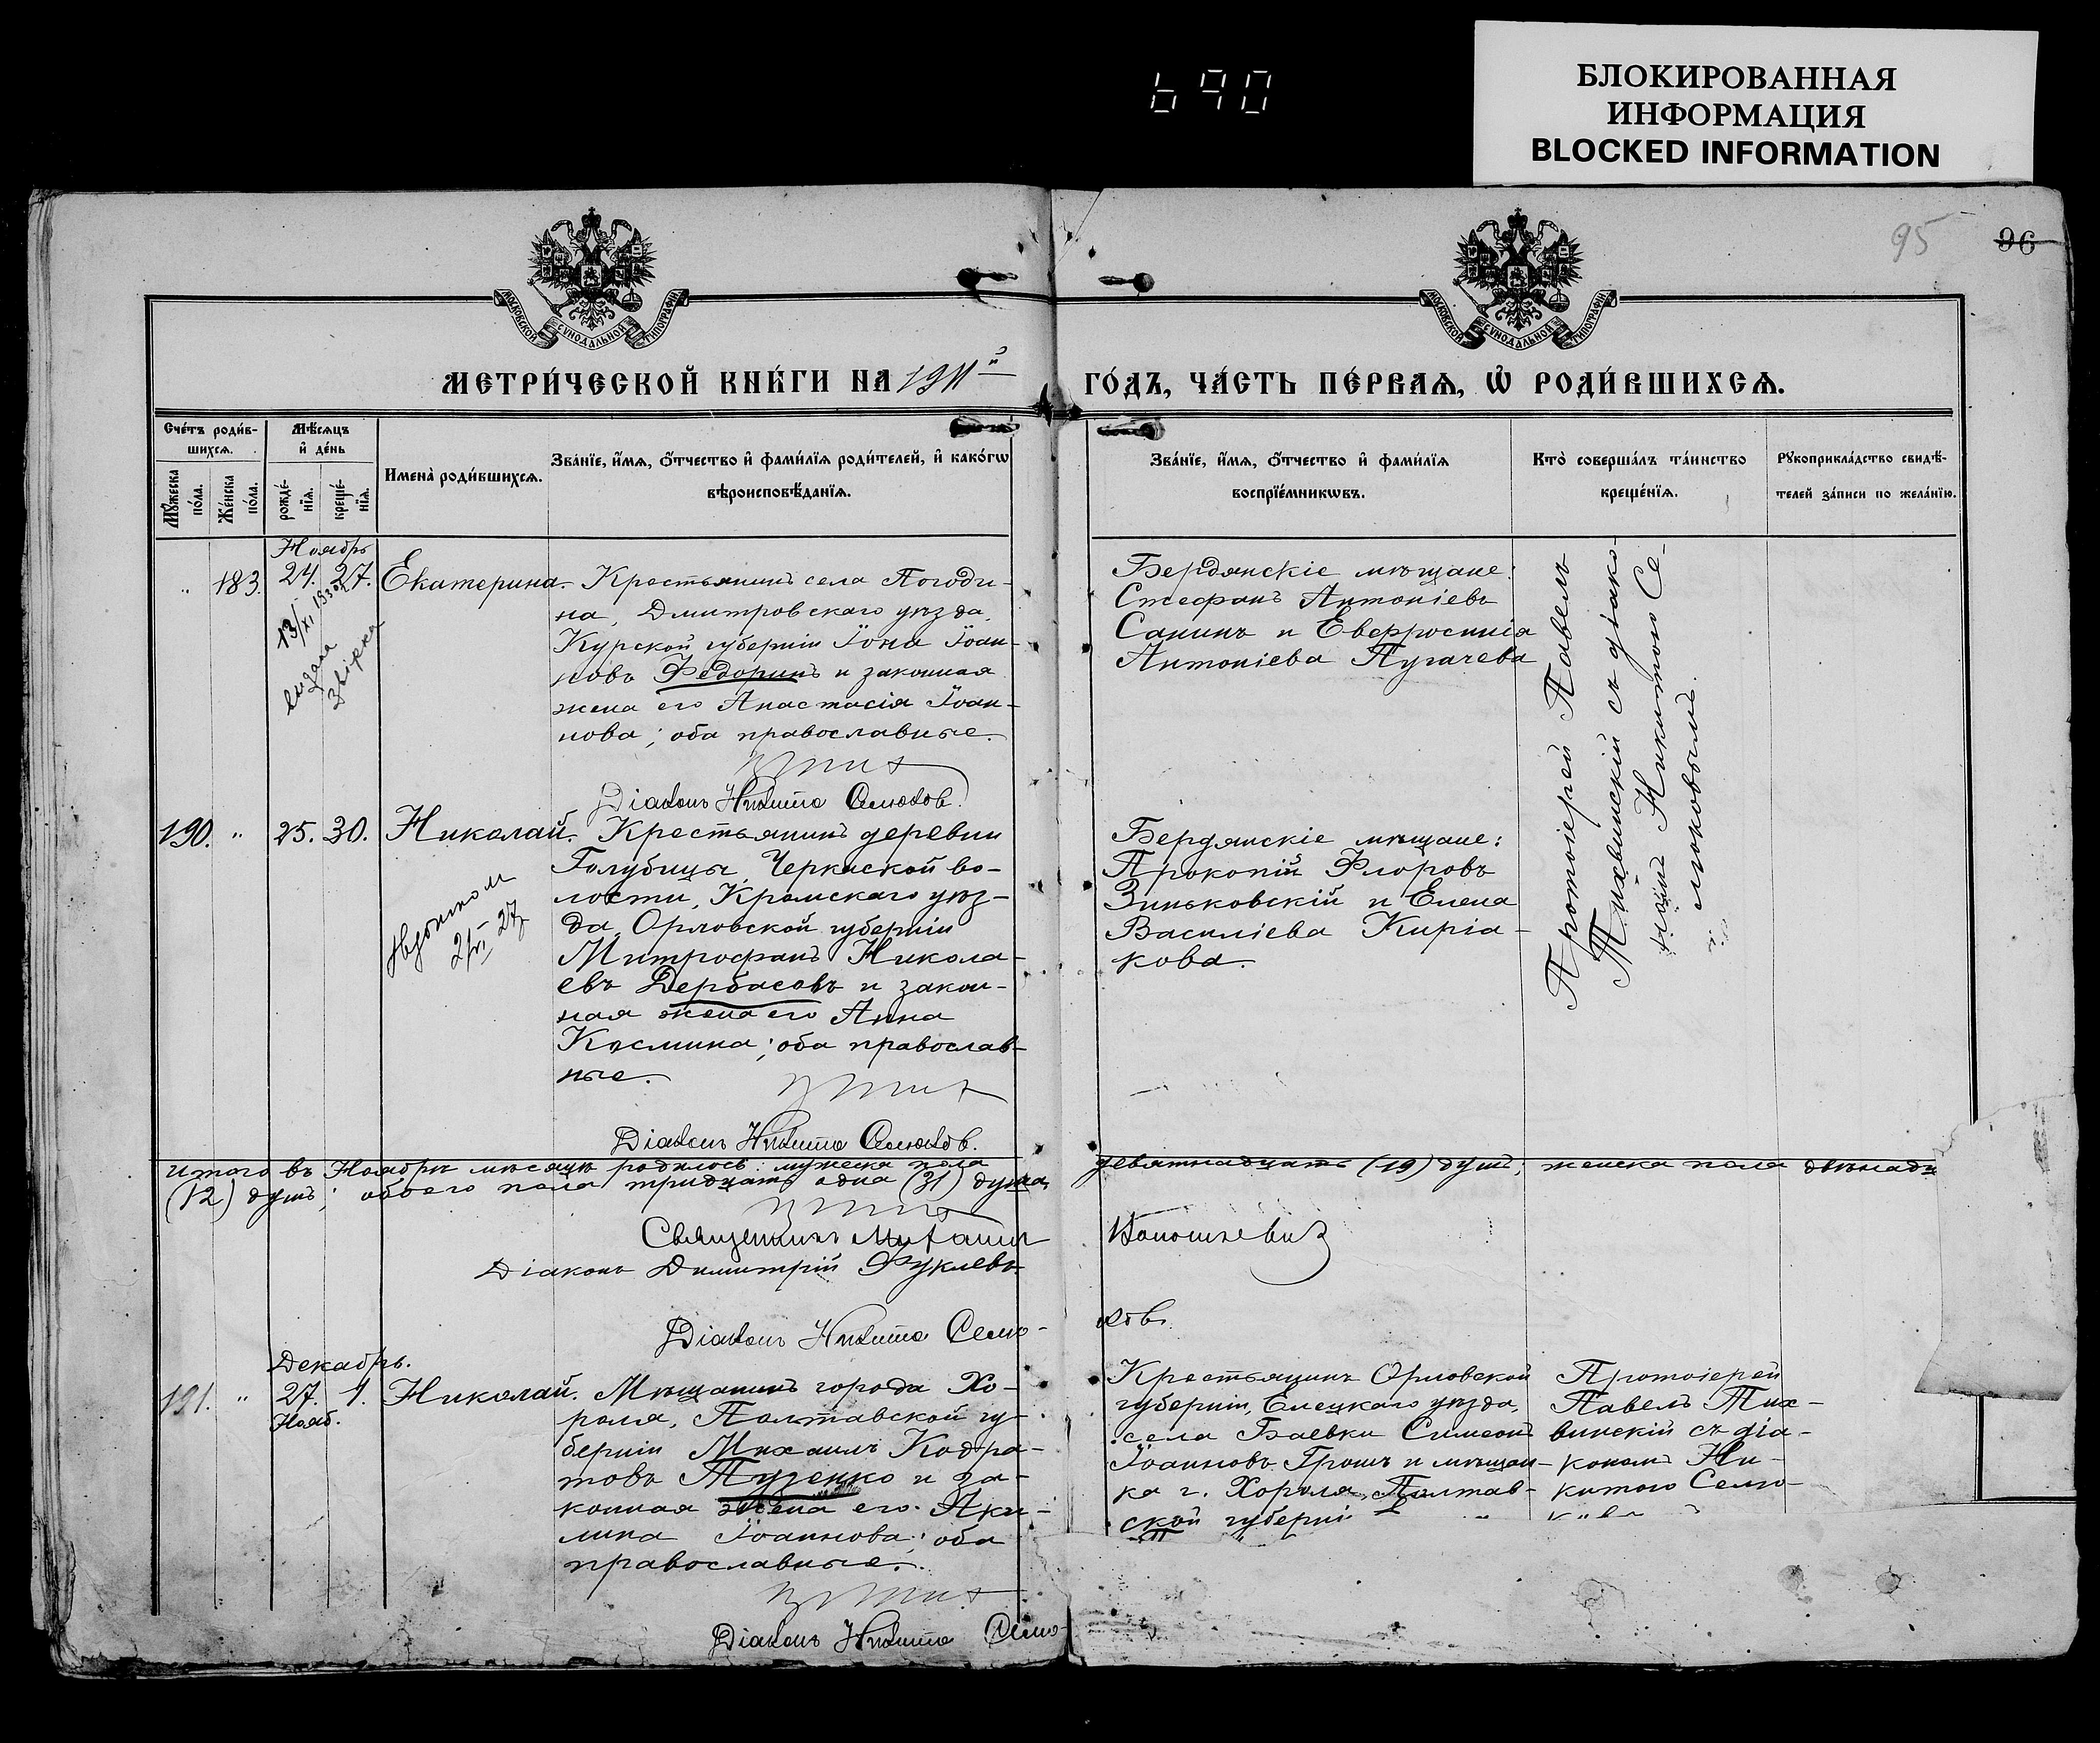 690
БЛОКИРОВАННАЯ
ИНФОРМАЦИЯ
BLOCKED INFORMATION
95
96
МОСКОВСКОЙ СѴНОДАЛЬНОЙ ТИПОГРАФІИ
МОСКОВСКОЙ СѴНОДАЛЬНОЙ ТИПОГРАФІИ
МЕТРИ́ЧЕСКОЙ КНИ́ГИ НА 1911й
ГО́ДЪ, ЧА́СТЬ ПЕ́РВАѦ, Ѡ҆ РОДИ́ВШИХСѦ.
Сче́тъ роди́в-
шихсѧ.
Мѣ́сѧцъ
и҆ де́нь
Мꙋ́жеска
по́ла.
Же́нска
по́ла.
рожде́-
нїѧ.
креще́-
нїѧ.
Имена̀ роди́вшихсѧ.
Зва́нїе, и҆́мѧ, ѻ҆́тчество и҆ фами́лїѧ роди́телей, и҆ како́гѡ
вѣроисповѣ́данїѧ.
Зва́нїе, и҆́мѧ, ѻ҆́тчество и҆ фами́лїѧ
воспрїе́мникѡвъ.
Кто̀ соверша́лъ та́инство
креще́нїѧ.
Рꙋкоприкла́дство свидѣ́-
телей за́писи по жела́нїю.
Ноябрь
" 183. 24. 27. Екатерина. Крестьянинъ села Погоди-
на, Дмитровскаго уѣзда,
Курской губерніи Іона Іоан-
новъ Федоринъ и законная
жена его Анастасія Іоан-
нова; оба православные.
Діаконъ Никита Семюков.
13/XI 1930
Бердянскіе мѣщане:
Стефанъ Антоніевъ
Санинъ и Евфросинія
Антоніева Пугачева
Протоіерей Павелъ
Тихвинскій съ діако-
номъ Никитою Се-
мюковымъ.
190. " 25. 30. Николай. Крестьянинъ деревни
Голубицы, Черкаской во-
лости, Кромскаго уѣз-
да, Орловской губерніи
Митрофанъ Никола-
евъ Дербасовъ и закон-
ная жена его Анна
Космина; оба православ-
ные.
Діаконъ Никита Семюков.
Бердянскіе мѣщане:
Прокопій Флоровъ
Зиньковскій и Елена
Василіева Киріа-
кова.
Итого въ Ноябрѣ мѣсяцѣ родилось: мужеска пола
девятнадцать (19) душъ; женска пола двѣнадц
(12) душъ; обоего пола тридцать одна (31) душа.
Священникъ Михаилъ
Діаконъ Димитрій Фуклевъ
Діаконъ Никита Семю-
ков.
Декабрь.
191. " 27. 1. Николай. Мѣщанинъ города Хо-
Нояб.
рола, Полтавской гу-
берніи Михаилъ Кодра-
товъ Тузенко и за-
конная жена его Аки-
лина Іоаннова; оба
православные.
Діаконъ Никита Семю-
Крестьянинъ Орловской
губерніи, Елецкаго уѣзда,
села Баевки Симеонъ
Іоанновъ Грошъ и мѣщан-
ка г. Хорола, Полтав-
ской губерні
Протоіерей
Павелъ Тих-
винскій съ діа-
кономъ Ни-
китою Семю-